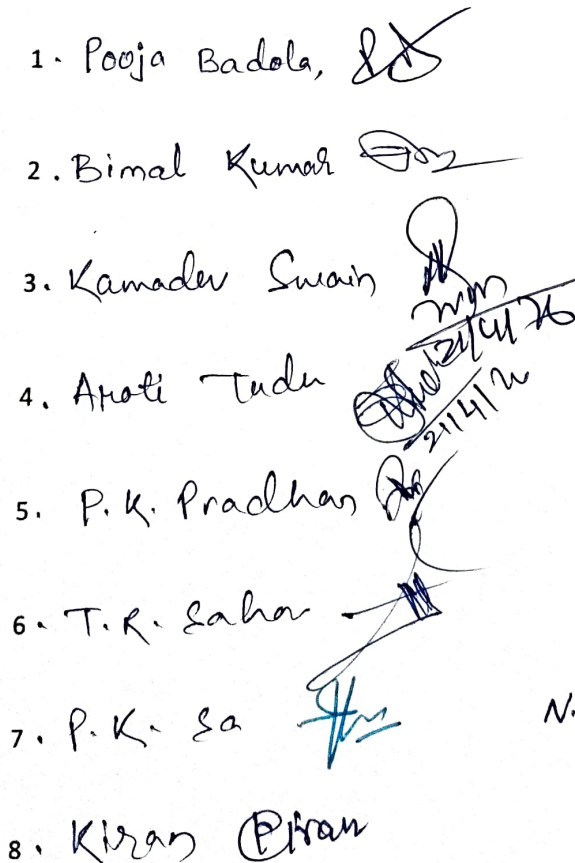 1. Pooja Badola,
2. Bimal Kumar
3. Kamadev Swain
21/4/26
4. Arati Tudu
21/4/26
5. P.K. Pradhan
6. T.R. Sahoo
7. P.K. Sa
N.
8. Kiran Kiran